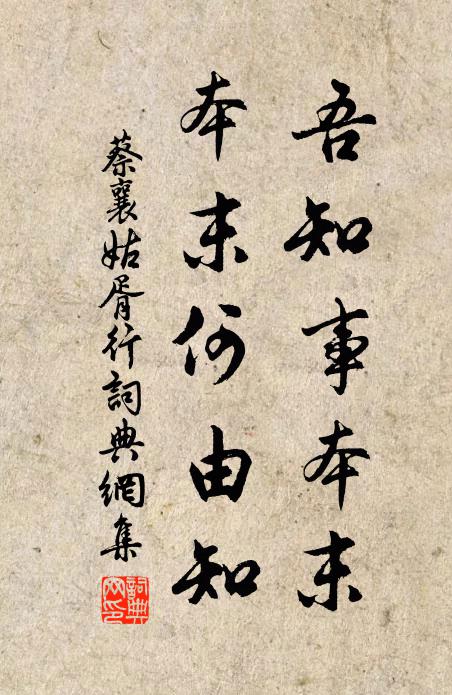 吾知事本末
本末何由知
蔡襄姑胥行詞典網集
詞典
网印